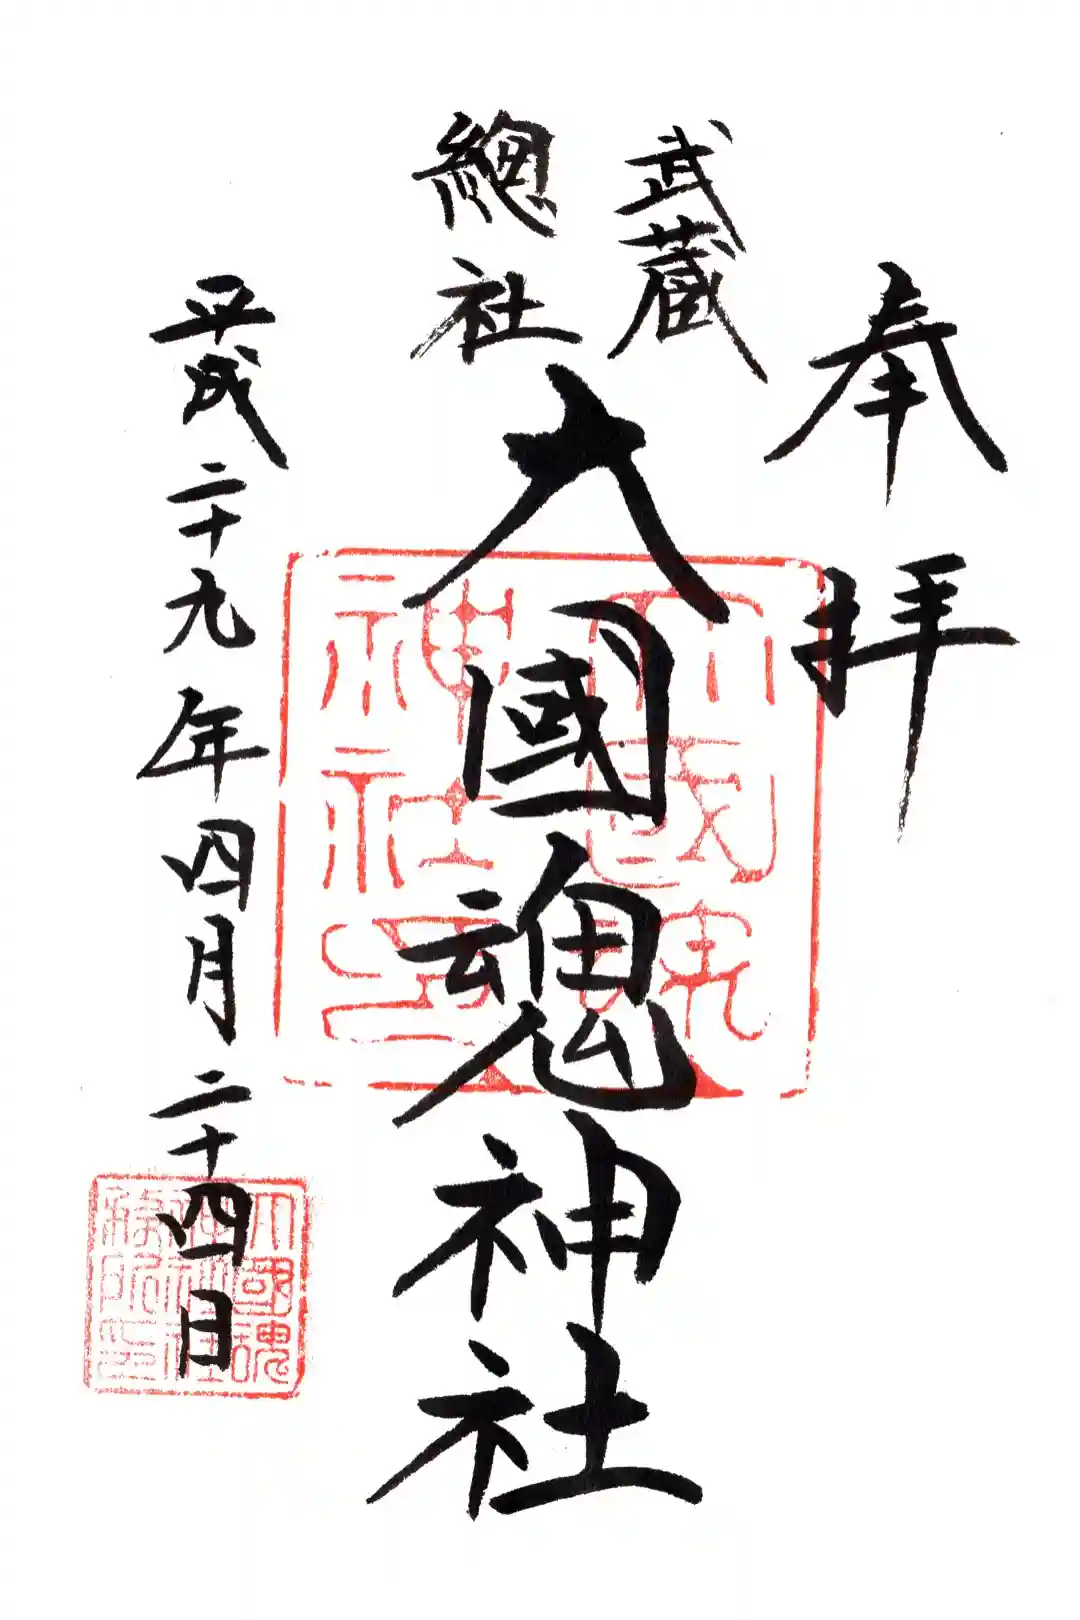 奉拝
武蔵
總社
大國魂神社
平成二十九年四月二十四日
大國魂
神社印
大國魂
神社
務所印